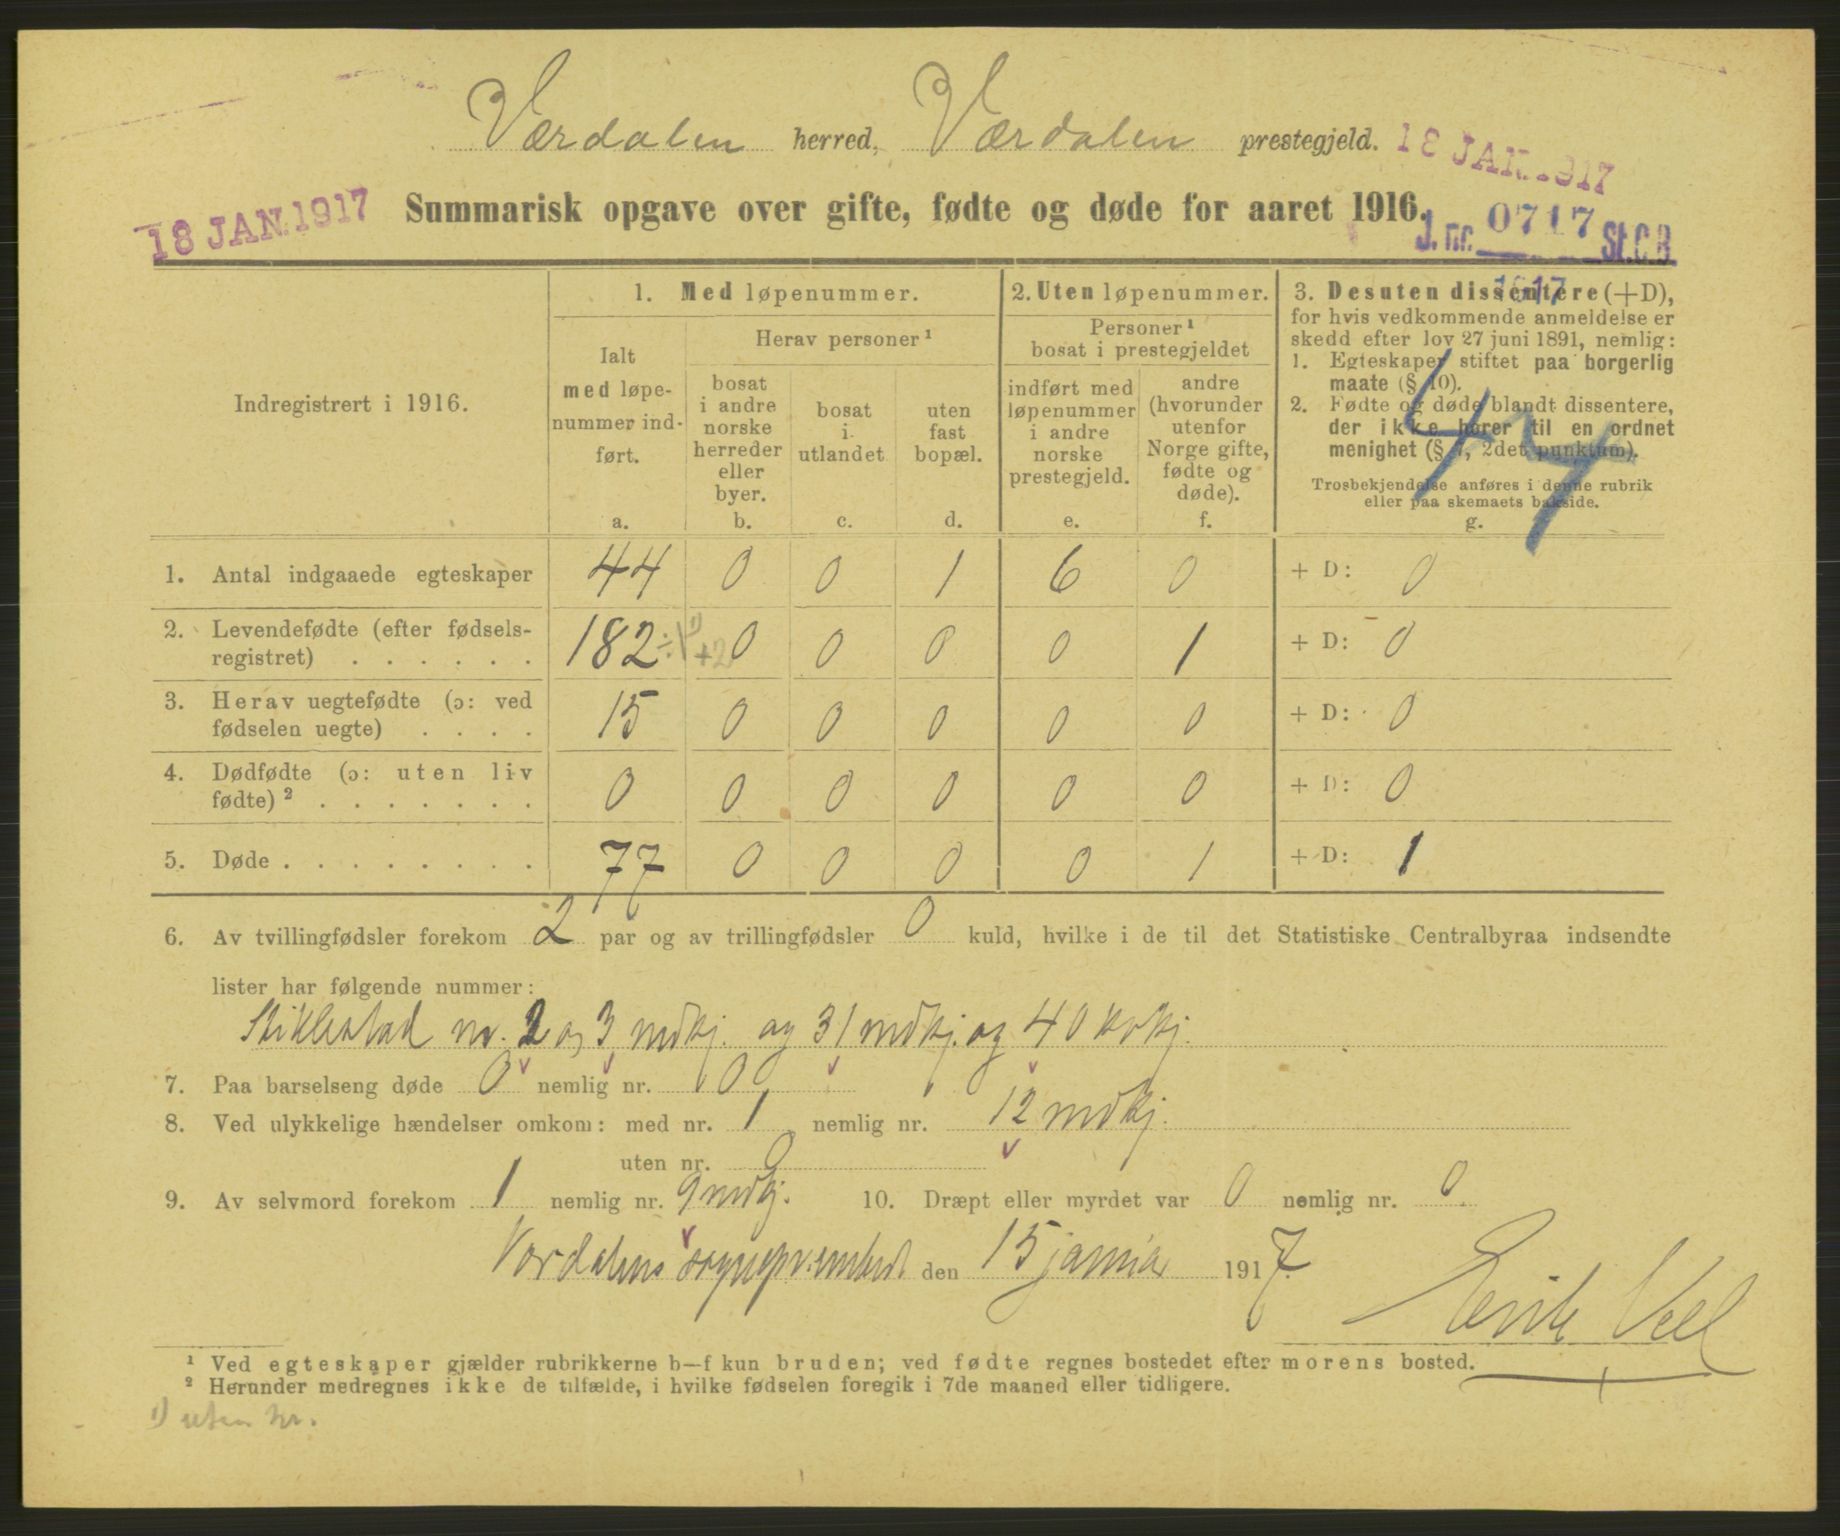 Værdalen herred, Værdalen prestegjeld. 18 JAN. 1917
18 JAN. 1917 Summarisk opgave over gifte, fødte og døde for aaret 1916.
J. nr. 0717 St.C.B.
1917
Indregistrert i 1916.
1. Med løpenummer.
Ialt
med løpe-
nummer ind-
ført.
a.
Herav personer ¹
bosat
i andre
norske
herreder
eller
byer.
b.
bosat
i
utlandet
c.
uten
fast
bopæl.
d.
2. Uten løpenummer.
Personer ¹
bosat i prestegjeldet
indført med
løpenummer
i andre
norske
prestegjeld.
e.
andre
(hvorunder
utenfor
Norge gifte,
fødte og
døde).
f.
3. Desuten dissentere (+D),
for hvis vedkommende anmeldelse er
skedd efter lov 27 juni 1891, nemlig:
1. Egteskaper stiftet paa borgerlig
maate (§ 10).
2. Fødte og døde blandt dissentere,
der ikke hører til en ordnet
menighet (§ 7, 2det punktum).
Trosbekjendelse anføres i denne rubrik
eller paa skemaets bakside.
g.
47
1. Antal indgaaede egteskaper 44 0 0 1 6 0 + D: 0
2. Levendefødte (efter fødsels-
registret) . . . . . . 182 ÷1 ¹⁾ +2 0 0 0 0 1 + D: 0
3. Herav uegtefødte (ɔ: ved
fødselen uegte) . . . . 15 0 0 0 0 0 + D: 0
4. Dødfødte (ɔ: uten liv
fødte) ² . . . . . . . 0 0 0 0 0 0 + D: 0
5. Døde . . . . . . . . 77 0 0 0 0 1 + D: 1
6. Av tvillingfødsler forekom 2 par og av trillingfødsler 0 kuld, hvilke i de til det Statistiske Centralbyraa indsendte
lister har følgende nummer:
Stiklestad nr. 2 og 3 mdkj. og 31 mdkj. og 40 kvkj.
7. Paa barselseng døde 0 nemlig nr. 0
8. Ved ulykkelige hændelser omkom: med nr. 1 nemlig nr. 12 mdkj.
uten nr. 0
9. Av selvmord forekom 1 nemlig nr. 9 mdkj. 10. Dræpt eller myrdet var 0 nemlig nr. 0
Værdalens sogneprestembed den 15 januar 1917.
¹ Ved egteskaper gjælder rubrikkerne b—f kun bruden; ved fødte regnes bostedet efter morens bosted.
² Herunder medregnes ikke de tilfælde, i hvilke fødselen foregik i 7de maaned eller tidligere.
¹⁾ uten nr.